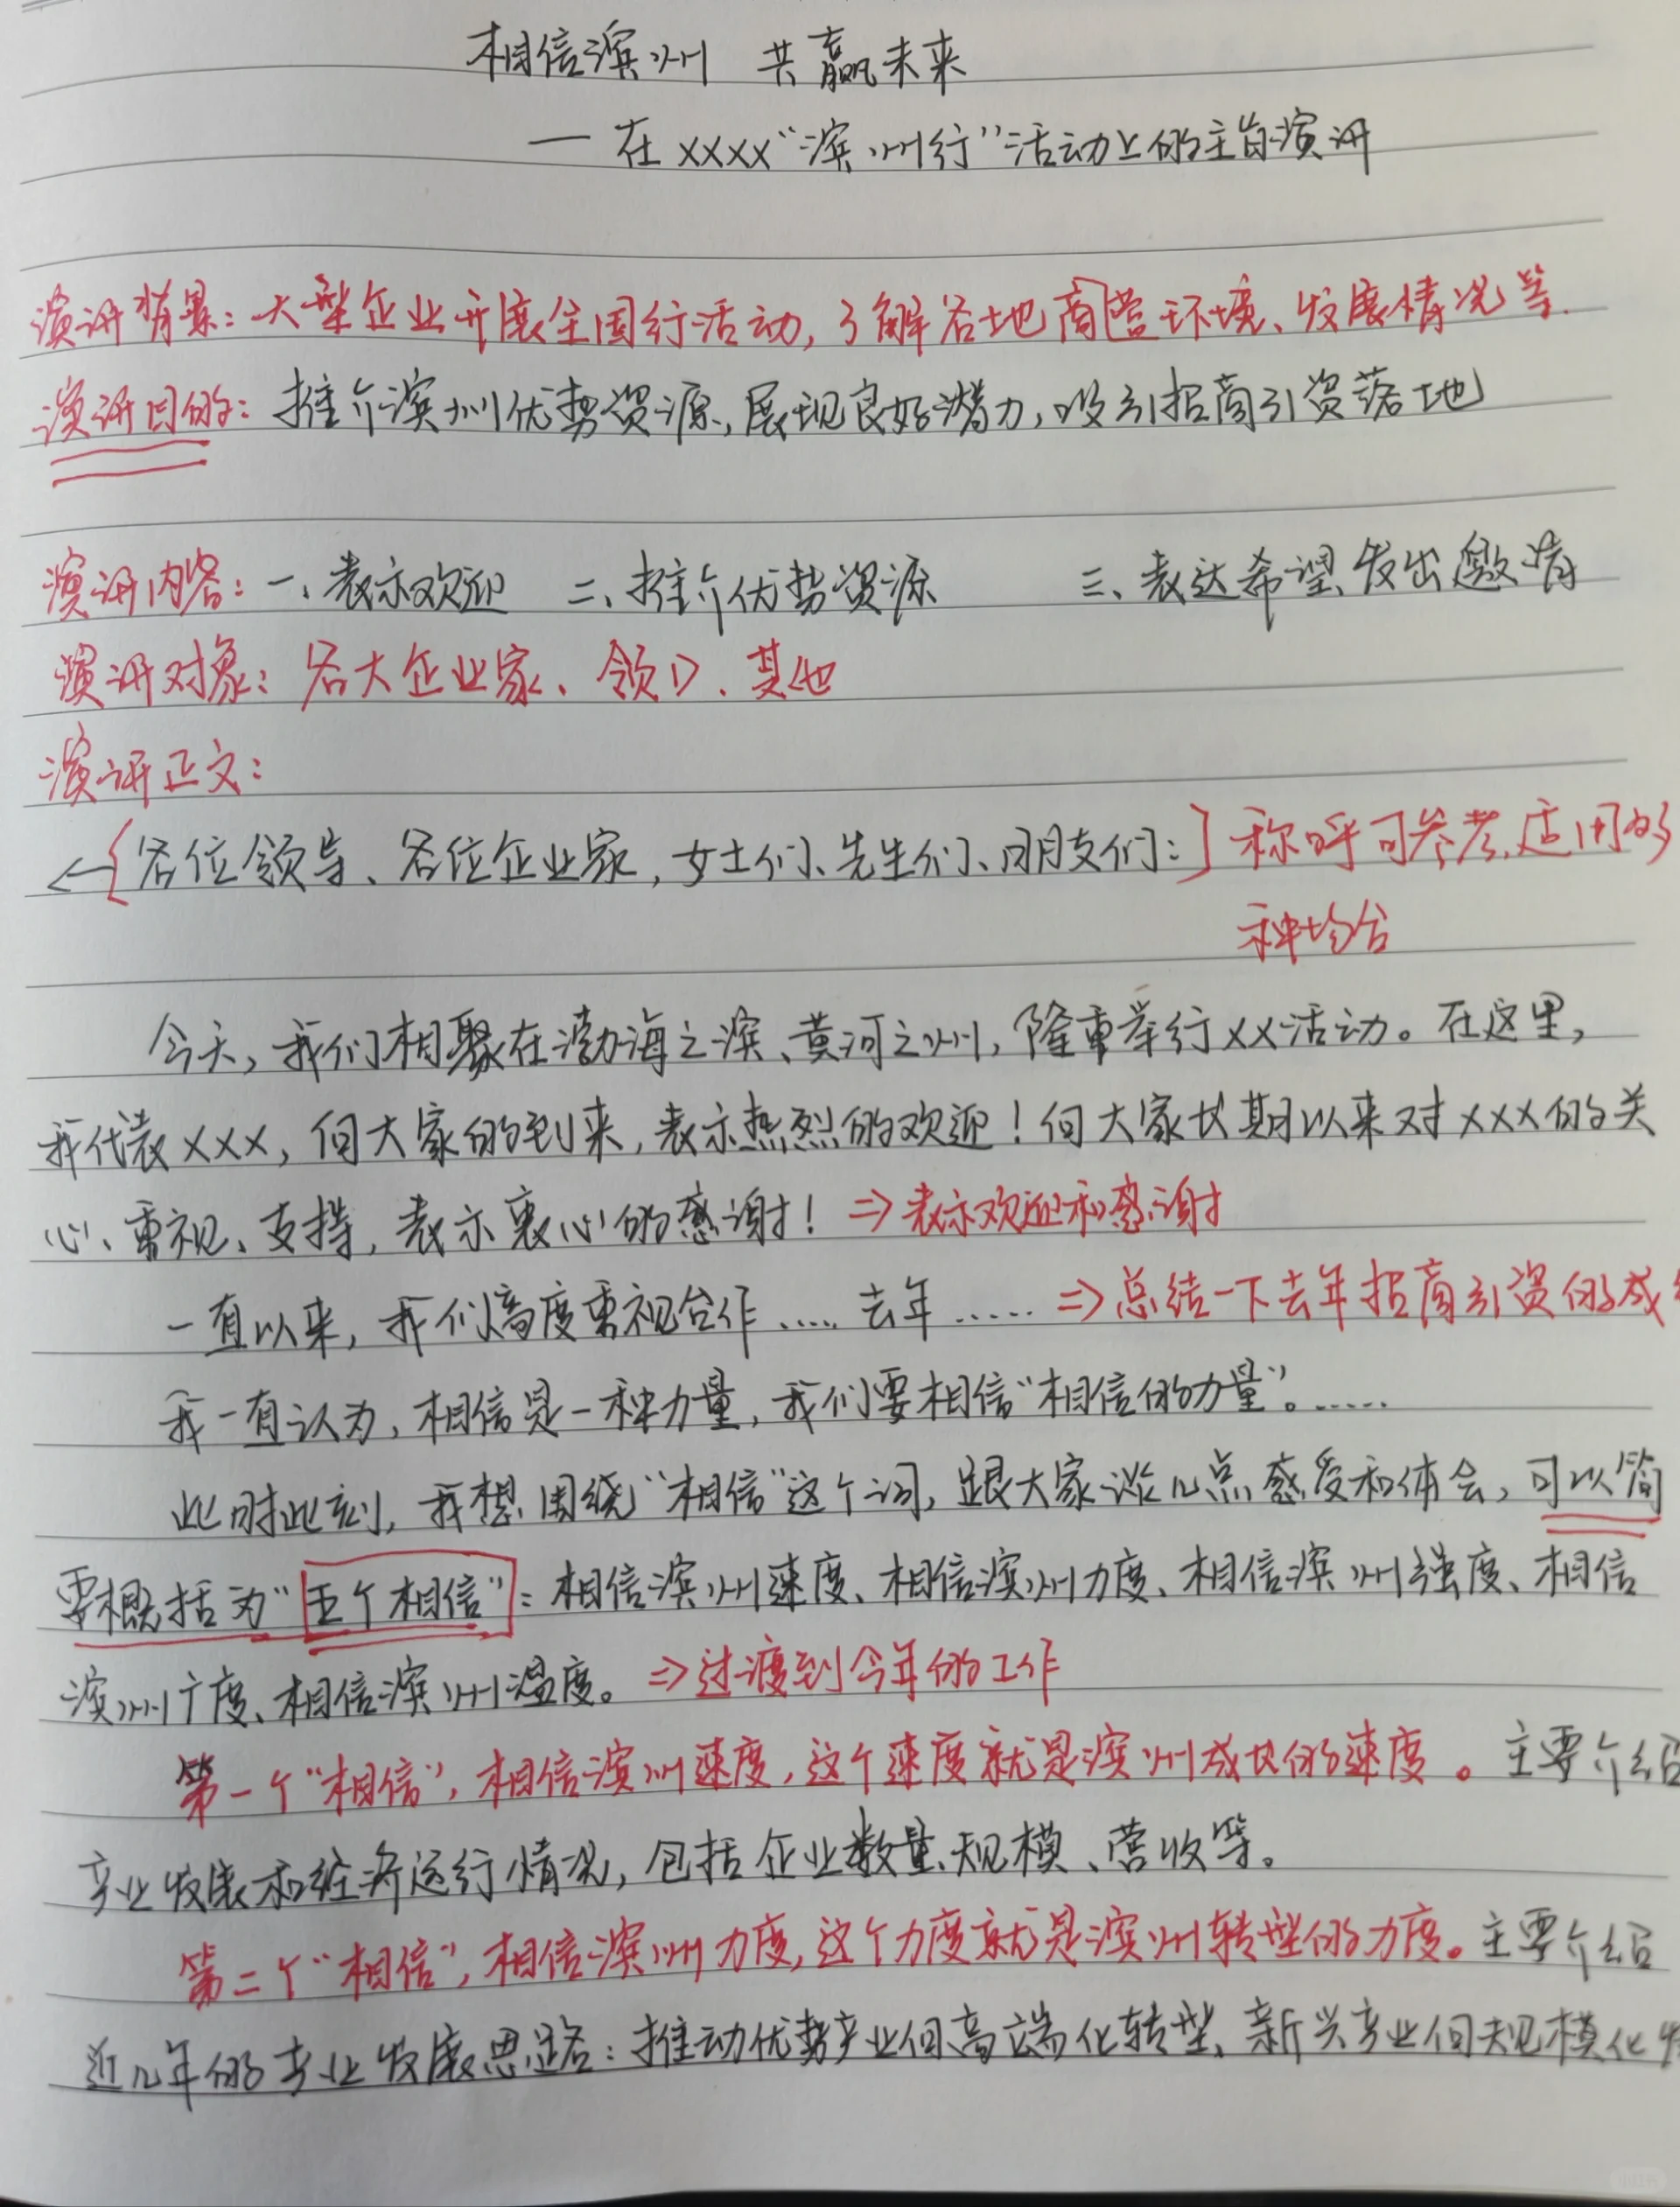 相信滨州 共赢未来
—在XXXX“滨州行”活动上的主旨演讲
演讲背景:大型企业开展全国行活动,了解各地商营环境、发展情况等.
演讲目的:推介滨州优势资源,展现良好潜力,吸引招商引资落地
演讲内容:一、表示欢迎 二、推介优势资源 三、表达希望、发出邀请
演讲对象:各大企业家、领导、其他
演讲正文:
各位领导、各位企业家,女士们、先生们、朋友们: 称呼可参考,适用多
种场合
今天,我们相聚在渤海之滨、黄河之州,隆重举行XX活动。在这里,
我代表XXX,向大家的到来,表示热烈的欢迎!向大家长期以来对XXX的关
心、重视、支持,表示衷心的感谢!⇒表示欢迎和感谢
一直以来,我们高度重视合作……去年……⇒总结一下去年招商引资的成
我一直认为,相信是一种力量,我们要相信“相信的力量”。……
此时此刻,我想围绕“相信”这个词,跟大家谈几点感受和体会,可以简
要概括为“五个相信”:相信滨州速度、相信滨州力度、相信滨州强度、相信
滨州广度、相信滨州温度。⇒过渡到今年的工作
第一个“相信”,相信滨州速度,这个速度就是滨州成长的速度。主要介绍
产业发展和经济运行情况,包括企业数量、规模、营收等。
第二个“相信”,相信滨州力度,这个力度就是滨州转型的力度。主要介绍
近几年的产业发展思路:推动优势产业向高端化转型、新兴产业向规模化